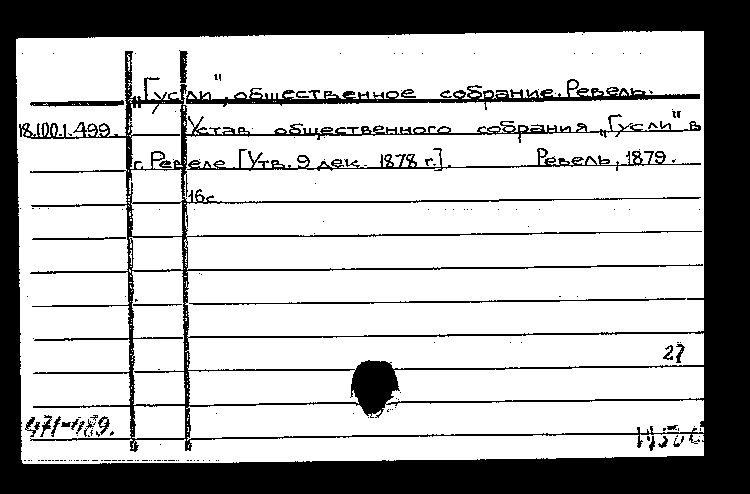 „Гусли", общественное собрание. Ревель.
18.100.1.499. Устав общественного собрания „Гусли" в
г. Ревеле [Утв. 9 дек. 1878 г.]. Ревель, 1879.
16с.
27
471-489.